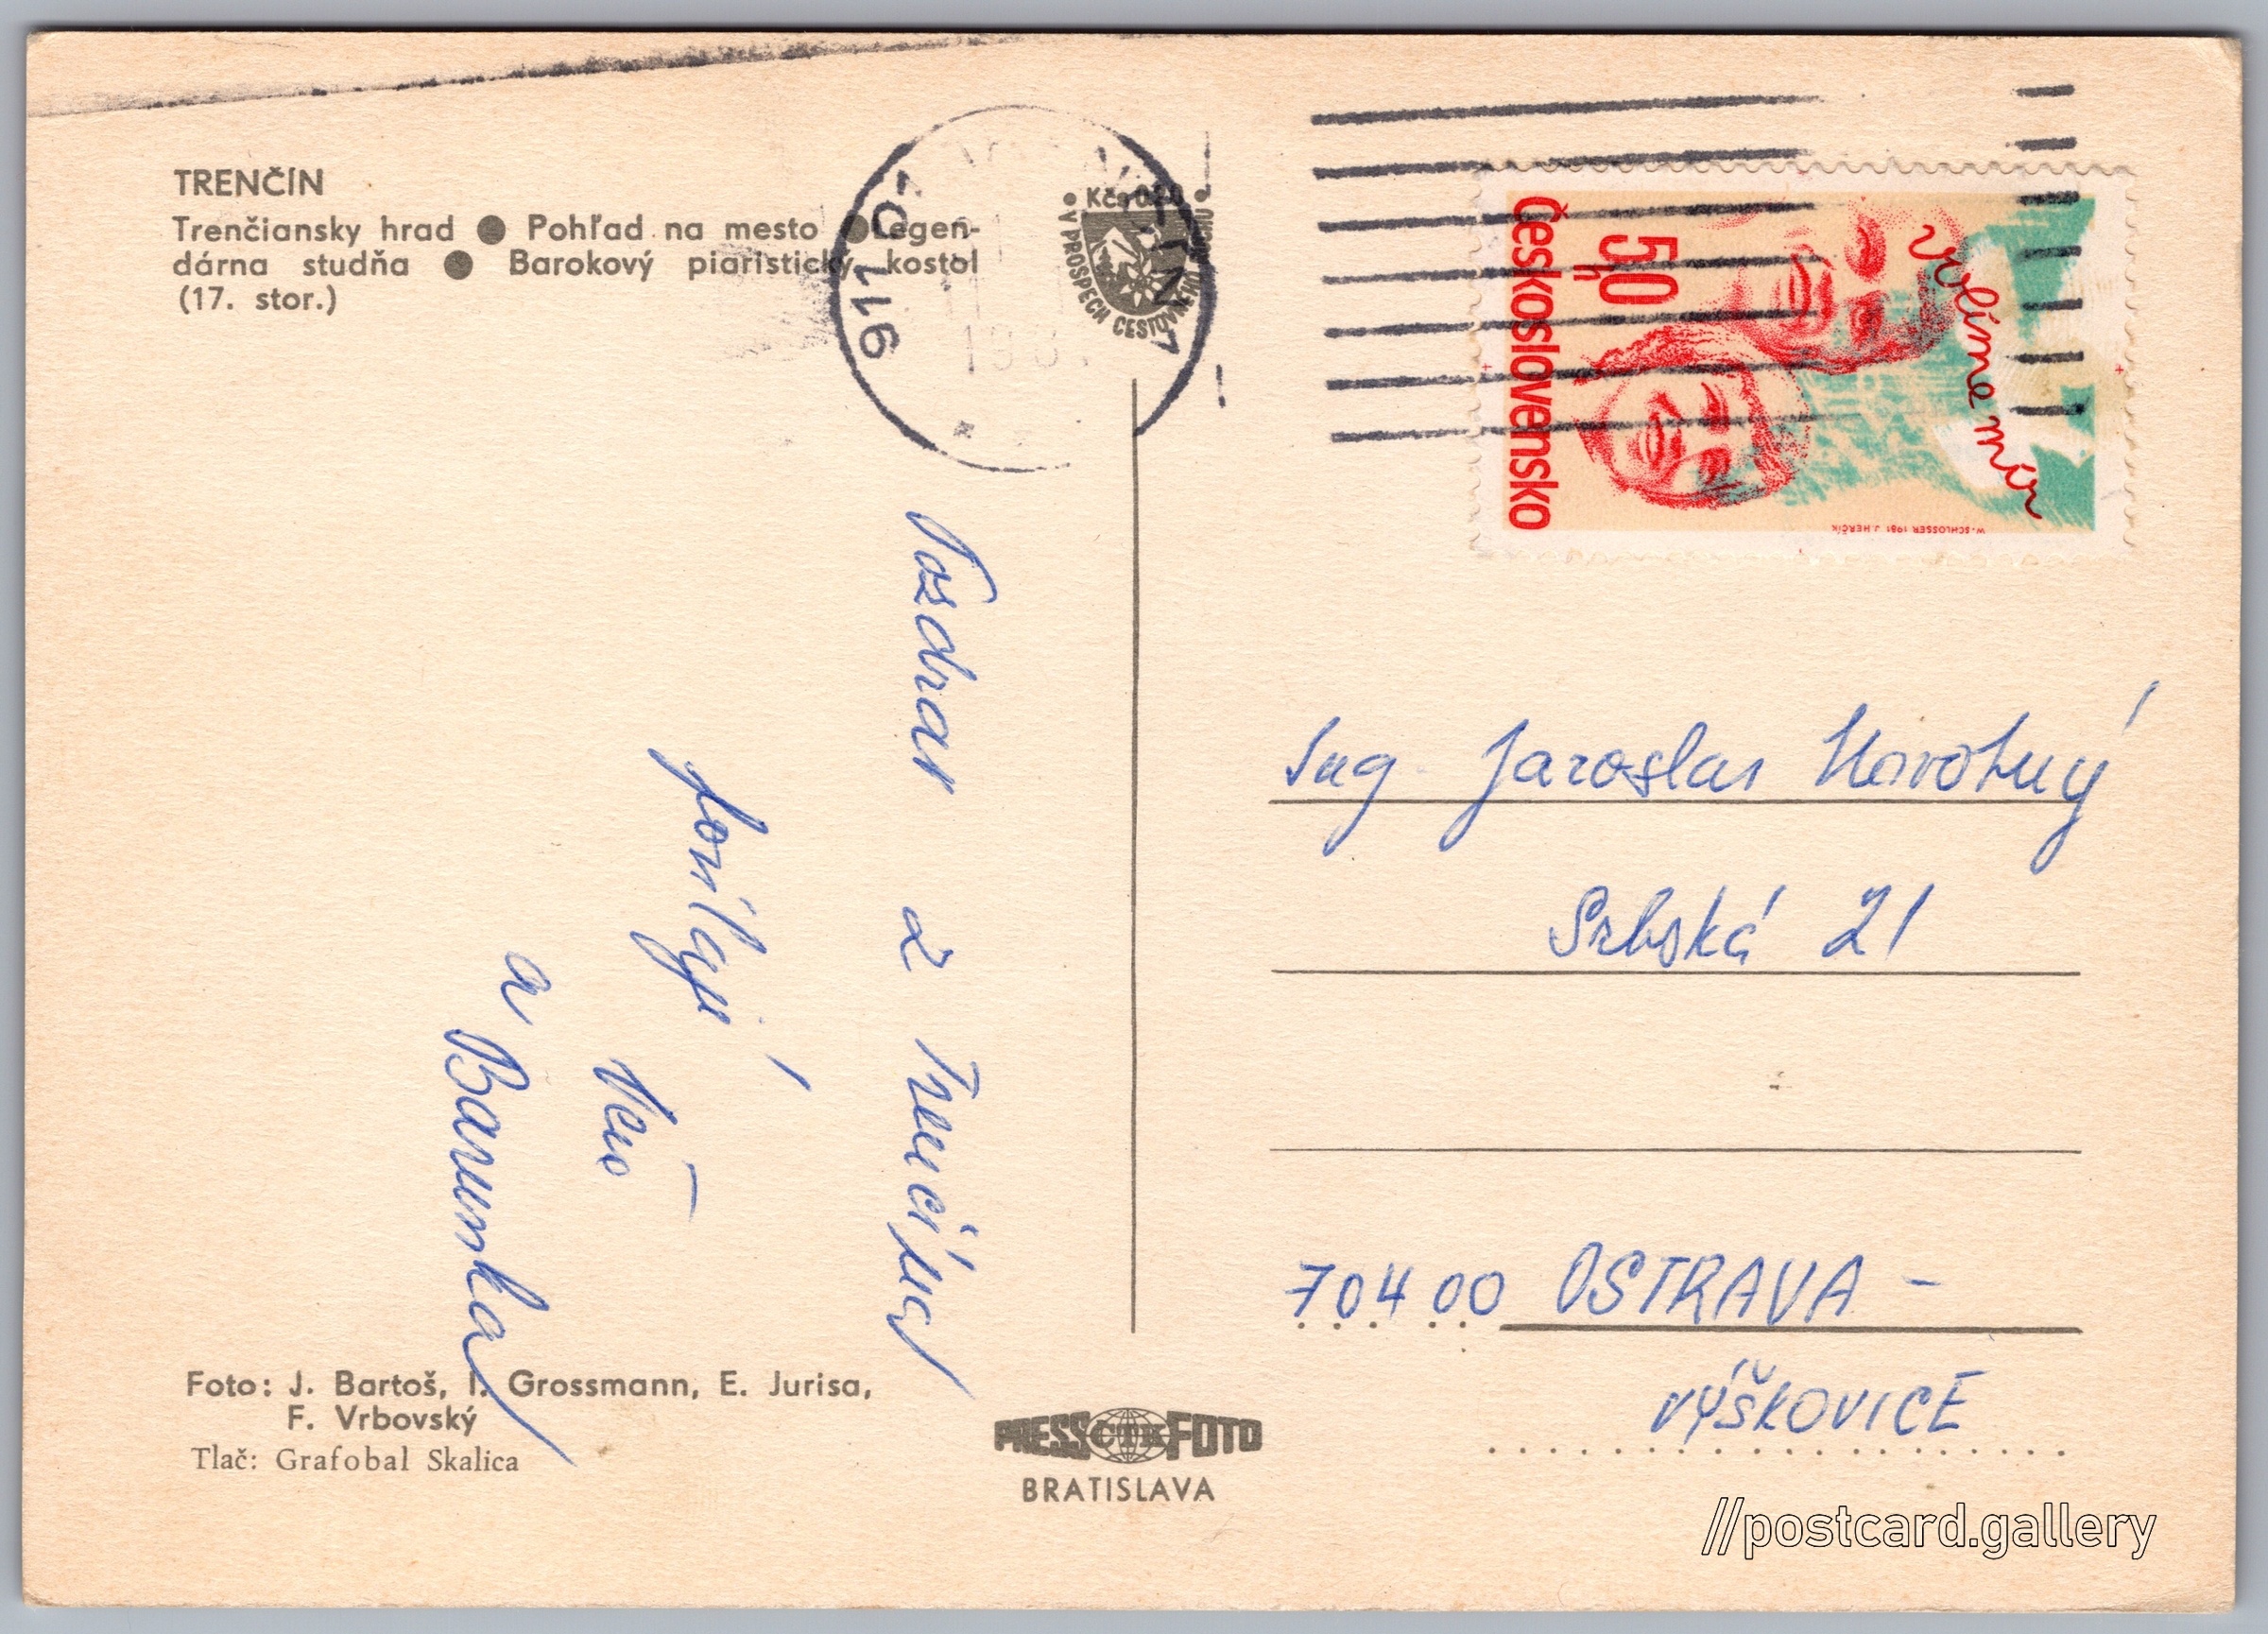 TRENČÍN
Trenčiansky hrad ● Pohľad na mesto ● Legen-
dárna studňa ● Barokový piaristický kostol
(17. stor.)
911 01
Kčs
V PROSPECH CESTOVNÉHO RUCHU
50h
Československo
volíme mír
W. SCHLOSSER 1981 J. HERČÍK
Pozdrav z Trenčína
posílají
a Barunka
Ing Jaroslav Novotný
Srbská 21
704 00 OSTRAVA -
VÝŠKOVICE
Foto: J. Bartoš, I. Grossmann, E. Jurisa,
F. Vrbovský
Tlač: Grafobal Skalica
PRESS ČTK FOTO
BRATISLAVA
//postcard.gallery